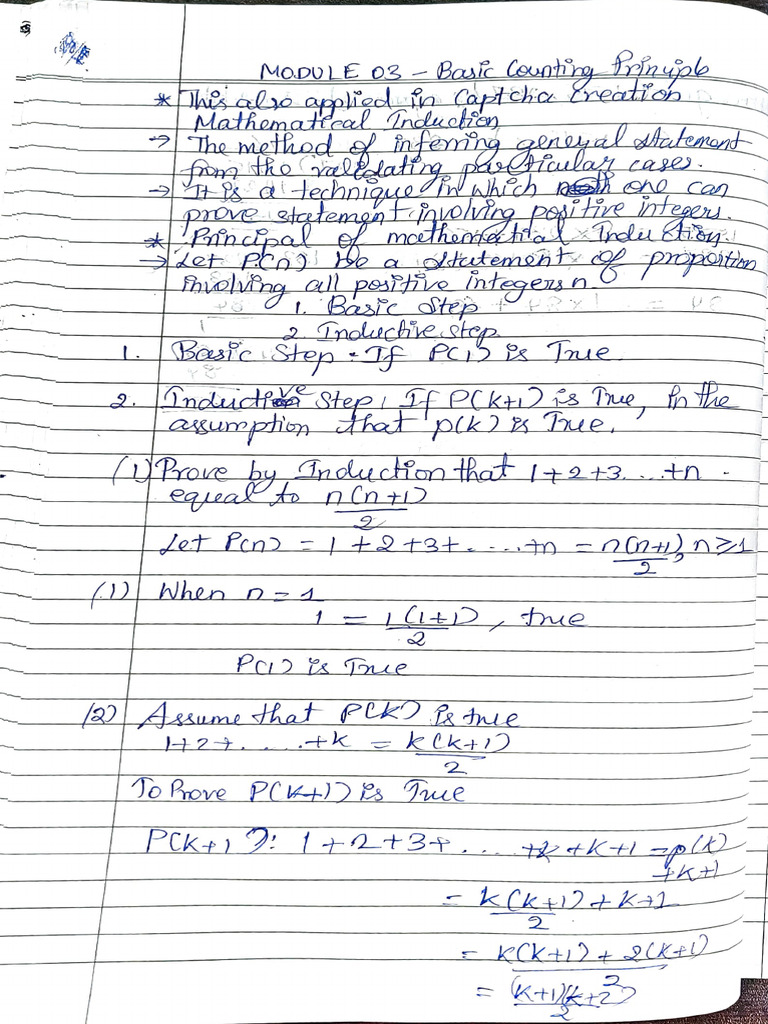 MODULE 03 - Basic Counting Principle
* This also applied in Captcha Creation
Mathematical Induction
→ The method of inferring general statement
from the validating particular cases.
→ It is a technique in which one can
prove statement involving positive integers.
* Principal of mathematical Induction.
→ Let P(n) be a statement of proposition
involving all positive integers n.
1. Basic Step
2. Inductive step
1. Basic Step - If P(1) is True
2. Inductive Step, If P(k+1) is True, in the
assumption that p(k) is True.
(1) Prove by Induction that 1+2+3...+n
equal to n(n+1)
2
Let P(n) = 1+2+3+.....+n = n(n+1), n≥1
2
(1) When n = 1
1 = 1(1+1), true
2
P(1) is True
(2) Assume that P(k) is true
1+2+.....+k = k(k+1)
2
To Prove P(k+1) is True
P(k+1): 1+2+3+....+k+k+1 = p(k)
+k+1
= k(k+1) + k+1
2
= k(k+1) + 2(k+1)
2
= (k+1)(k+2)
2